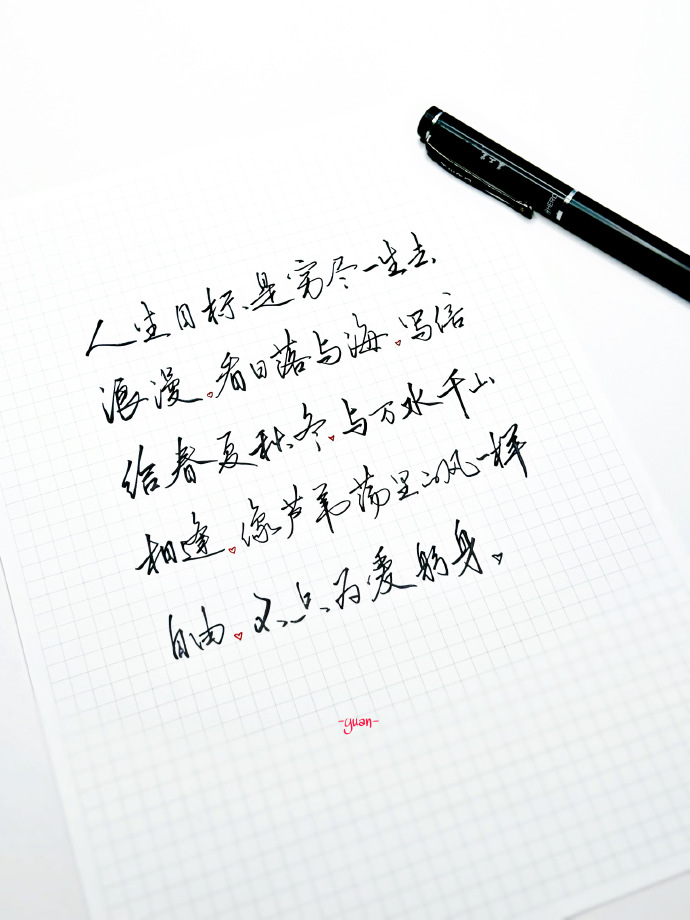 人生目标是穷尽一生去
浪漫♡看日落与海♡写信
给春夏秋冬♡与万水千山
相逢♡像芦苇荡里的风一样
自由♡又只为爱躬身♡
-yuan-
HERO